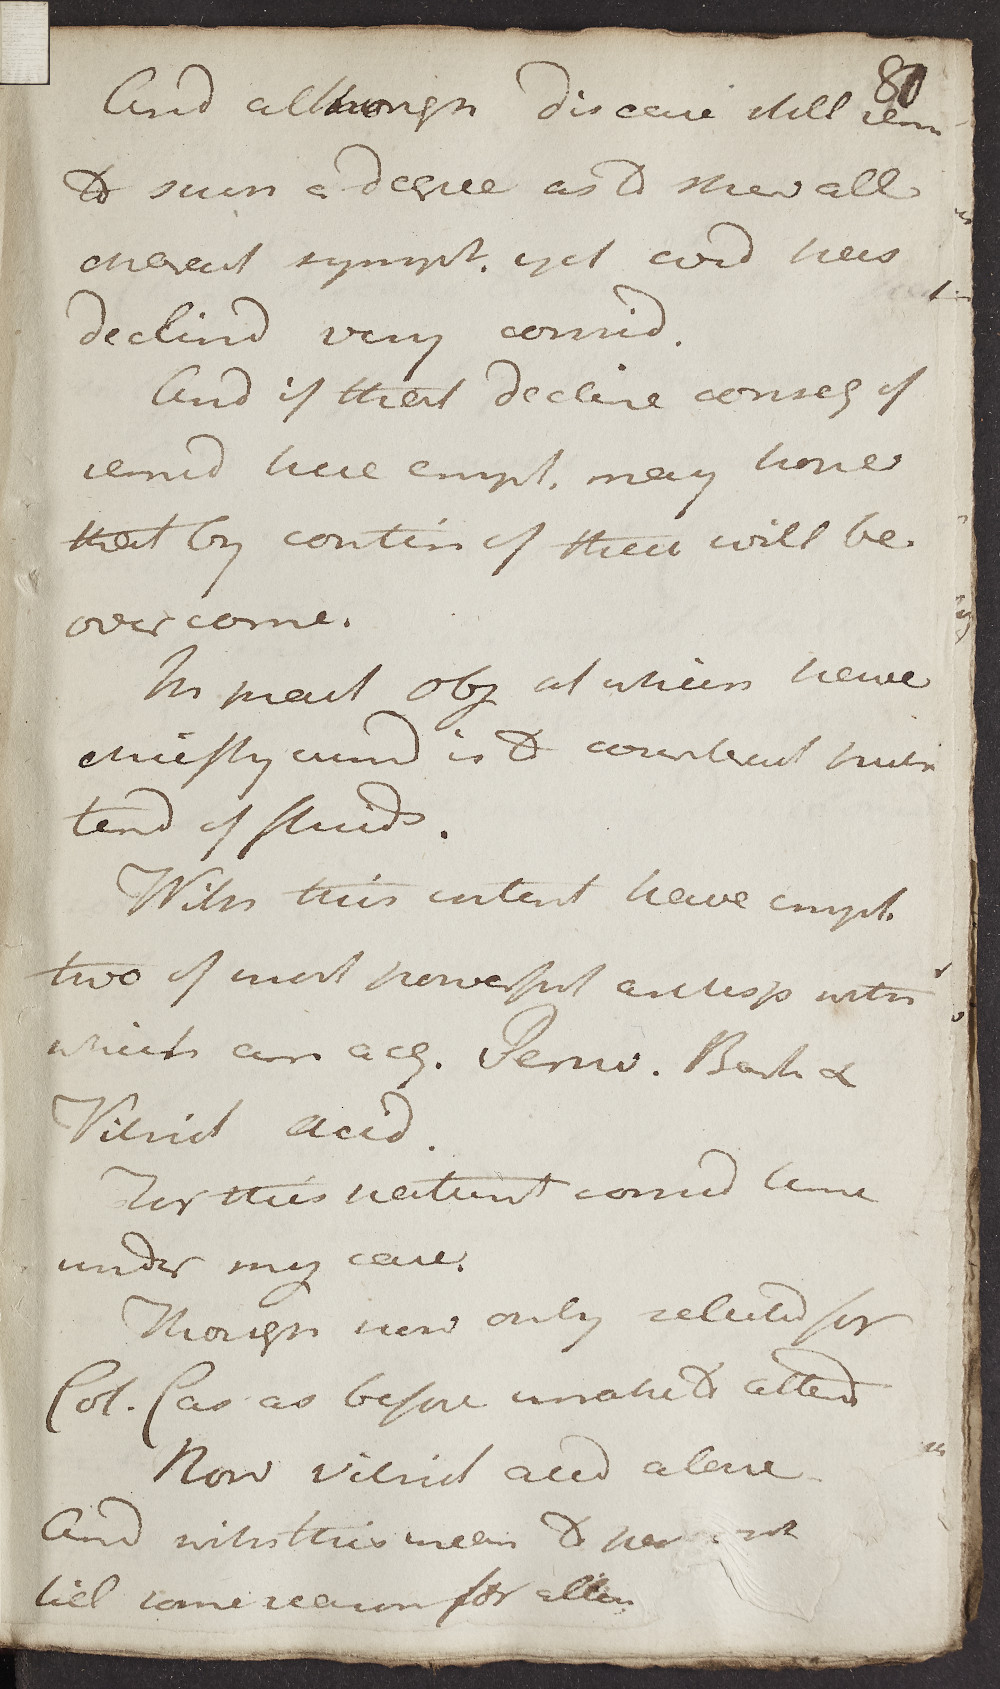 80
And although disease still rem
to such a degree as to shew all
cheract sympt. yet cord hers
declind very consid.
And if that decline conseq of
remed here empl. may hope
that by contin of them will be
overcome.
In pract obj at which have
chiefly aimd is to counteract putr
tend of fluids.
With this intent have empl.
two of most powerful antisep with
which am acq. Peruv. Bark &
Vitriol acid.
For this patient consid time
under my care.
Though now only selected for
Col. Cas as before unable to attend
Now vitriol acid alone
And with this mean to per
till some reason for alter